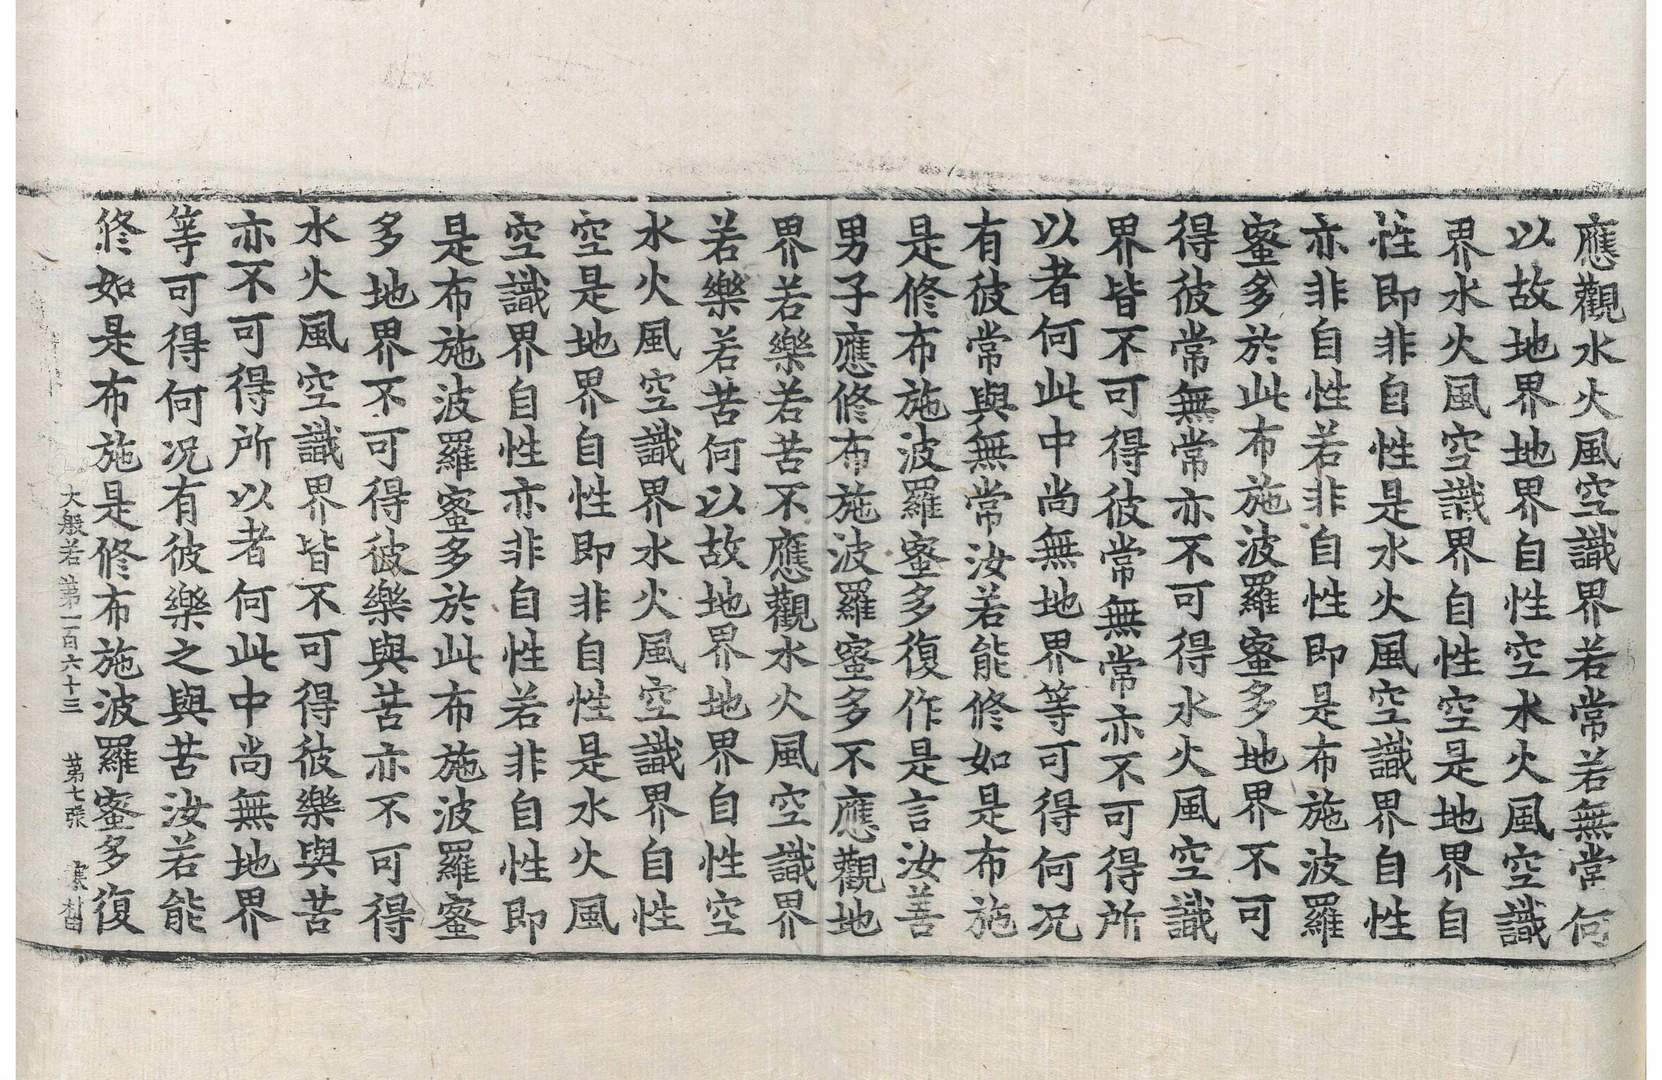 應觀水火風空識界若常若無常何
以故地界地界自性空水火風空識
界水火風空識界自性空是地界自
性即非自性是水火風空識界自性
亦非自性若非自性即是布施波羅
蜜多於此布施波羅蜜多地界不可
得彼常無常亦不可得水火風空識
界皆不可得彼常無常亦不可得所
以者何此中尚無地界等可得何况
有彼常與無常汝若能修如是布施
是修布施波羅蜜多復作是言汝善
男子應修布施波羅蜜多不應觀地
界若樂若苦不應觀水火風空識界
若樂若苦何以故地界地界自性空
水火風空識界水火風空識界自性
空是地界自性即非自性是水火風
空識界自性亦非自性若非自性即
是布施波羅蜜多於此布施波羅蜜
多地界不可得彼樂與苦亦不可得
水火風空識界皆不可得彼樂與苦
亦不可得所以者何此中尚無地界
等可得何况有彼樂之與苦汝若能
修如是布施是修布施波羅蜜多復
大般若第一百六十三 第七張